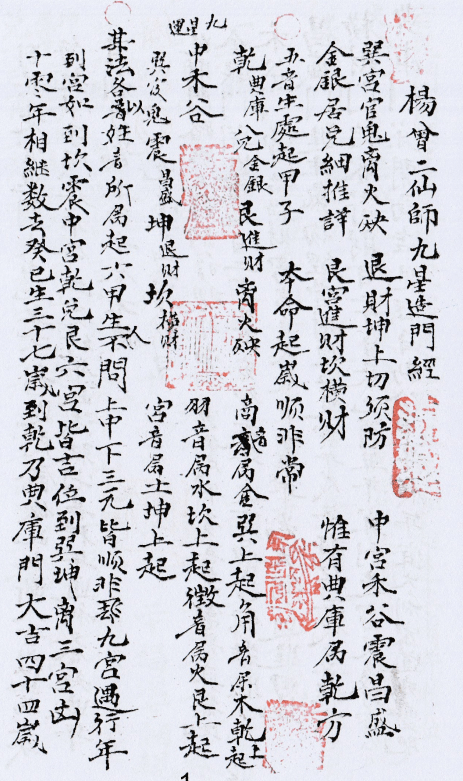 楊曾二仙師九星造門經
巽宮官鬼离火砄 退財坤上切須防 中宮禾谷震昌盛
金銀居兌細推詳 艮宮進財坎橫財 惟有典庫属乾方
五音生處起甲子 本命起歲順非常
乾典庫 兌金銀 艮進財 离火砄 商音属金巽上起角音属木乾上起
九星運
中禾谷 羽音属水坎上起徵音属火艮上起
巽官鬼 震昌盛 坤退財 坎橫財 宮音属土坤上起
其法各以音姓音所属起六甲生人不問上中下三元皆順非 九宮遇行年
到宮如到坎震中宮乾兌艮六宮皆吉位到巽坤离三宮凶
十零年相継数去癸巳生三十七歲到乾乃典庫門大吉四十四歲
1